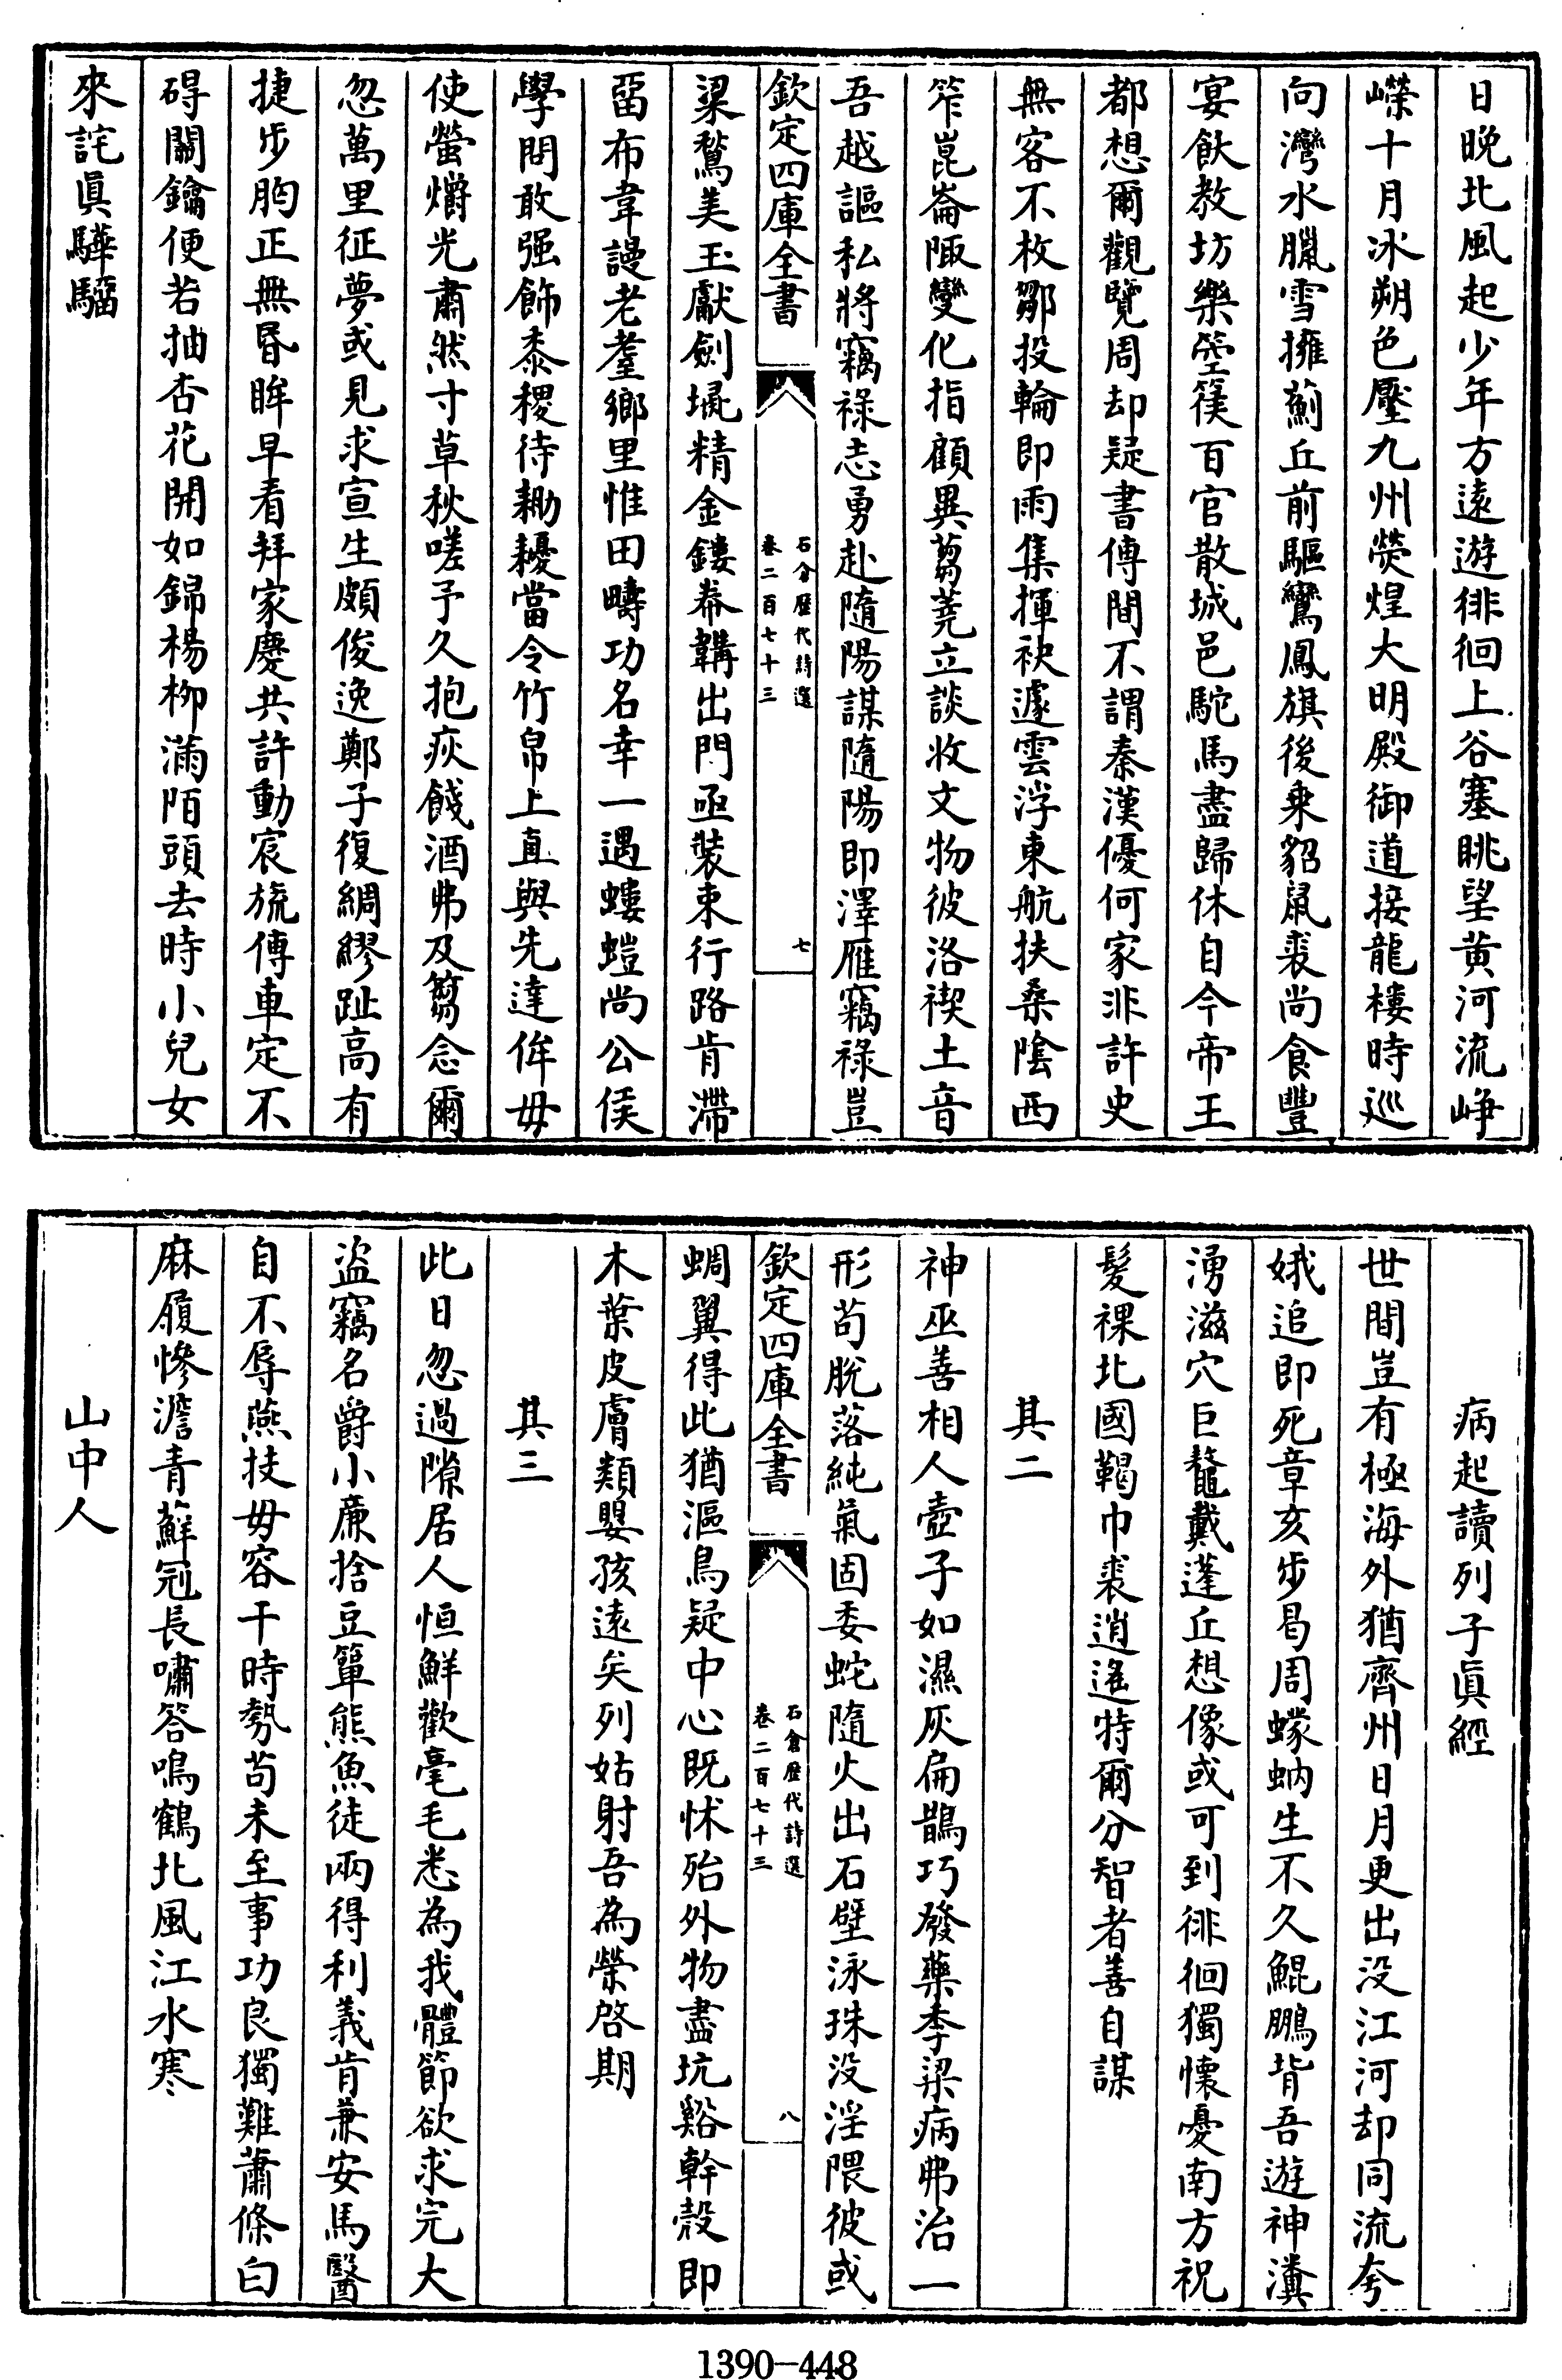 日晚北風起少年方遠遊徘徊上谷塞眺望黄河流崢
嶸十月冰朔色壓九州熒煌大明殿御道接龍樓時巡
向灣水臘雪擁薊丘前驅鸞鳳旗後乗貂鼠裘尚食豐
宴飲教坊樂箜篌百官散城邑駝馬盡歸休自今帝王
都想爾觀覽周却疑書傳間不謂秦漢優何家非許史
無客不枚鄒投輪即雨集揮袂遽雲浮東航扶桑陰西
笮崑崙陬變化指顧異芻蕘立談收文物彼洛禊土音
吾越謳私將竊祿志勇赴隨陽謀隨陽即澤雁竊祿豈
欽定四庫全書
石倉歷代詩選
卷二百七十三
七
梁鶖美玉獻劍㙞精金鏤帣韝出門亟裝束行路肯滯
畱布韋謾老耋鄉里惟田疇功名幸一遇螻螘尚公侯
學問敢强飾黍稷待耡耰當令竹帛上直與先達侔毋
使螢爝光肅然寸草秋嗟予久抱疢餞酒弗及篘念爾
忽萬里征夢或見求宣生頗俊逸鄭子復綢繆趾高有
捷步胸正無昏眸早看拜家慶共許動宸旒傳車定不
碍關鑰便若抽杏花開如錦楊柳滿陌頭去時小兒女
來詫眞驊騮
病起讀列子眞經
世間豈有極海外猶齊州日月更出没江河却同流夸
娥追即死章亥步曷周蠓蚋生不久鯤鵬背吾遊神瀵
湧滋穴巨鼇戴蓬丘想像或可到徘徊獨懷憂南方祝
髮裸北國鞨巾裘逍遙特爾分智者善自謀
其二
神巫善相人壺子如濕灰扁鵲巧發藥季梁病弗治一
形茍脫落純氣固委蛇隨火出石壁泳珠没淫隈彼或
欽定四庫全書
石倉歷代詩選
卷二百七十三
八
蜩翼得此猶漚鳥疑中心既怵殆外物盡坑谿幹殼即
木葉皮膚類嬰孩遠矣列姑射吾為榮啓期
其三
此日忽過隙居人恒鮮歡毫毛悉為我體節欲求完大
盜竊名爵小廉捨豆簞熊魚徒兩得利義肯兼安馬醫
自不辱燕技毋容干時勢茍未至事功良獨難蕭條白
麻履慘澹青蘚冠長嘯答鳴鶴北風江水寒
山中人
1390-448